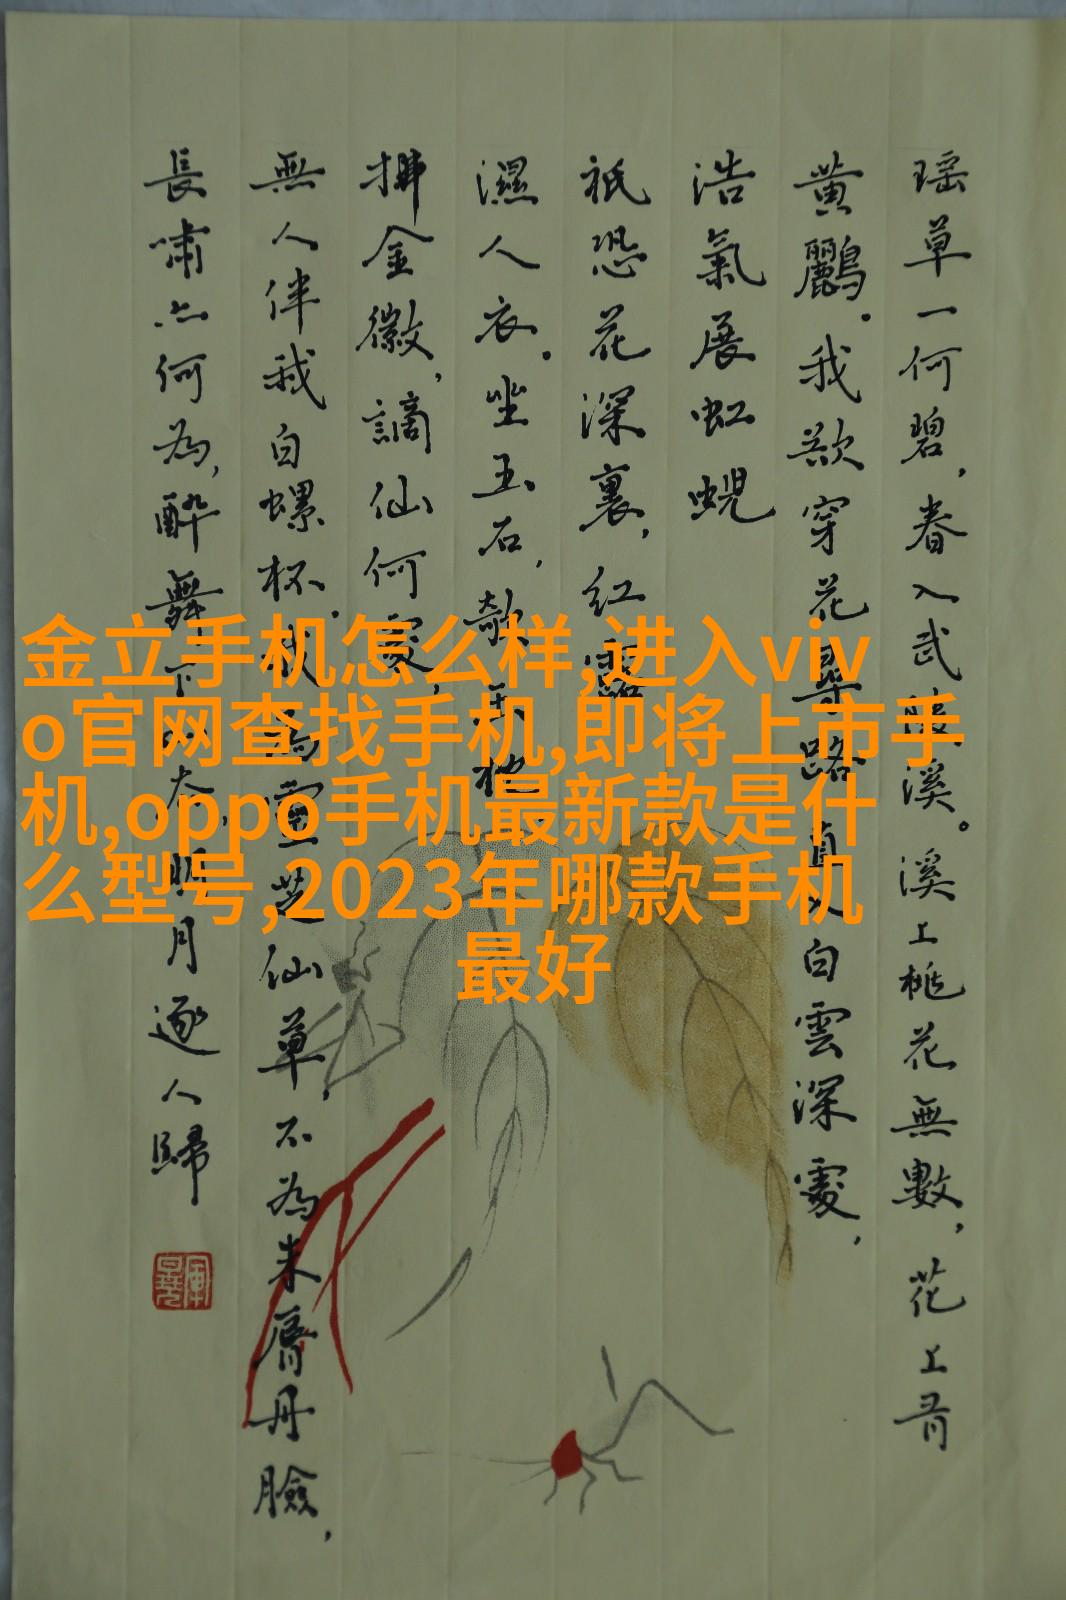 瑶草一何碧,春入武陵溪。溪上桃花無數,花上有
黄鸝。我欲穿花尋路,直入白雲深處,
浩氣展虹蜺
祇恐花深裏,红露
濕人衣。坐玉石,欹玉枕。
拂金徽,謫仙何處,
無人伴我白螺杯。我為靈芝仙草,不為朱唇丹臉,
長嘯亦何為,醉舞下山去,明月逐人歸
金立手机怎么样,进入viv
o官网查找手机,即将上市手
机,oppo手机最新款是什
么型号,2023年哪款手机
最好